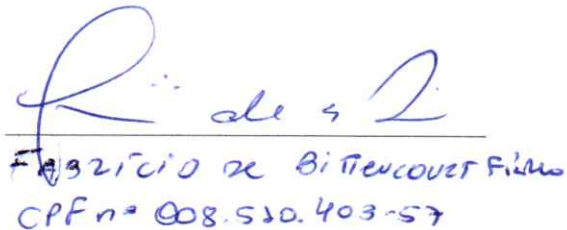 Fabrício de Bittencourt Filho
CPF nº 008.510.403-57